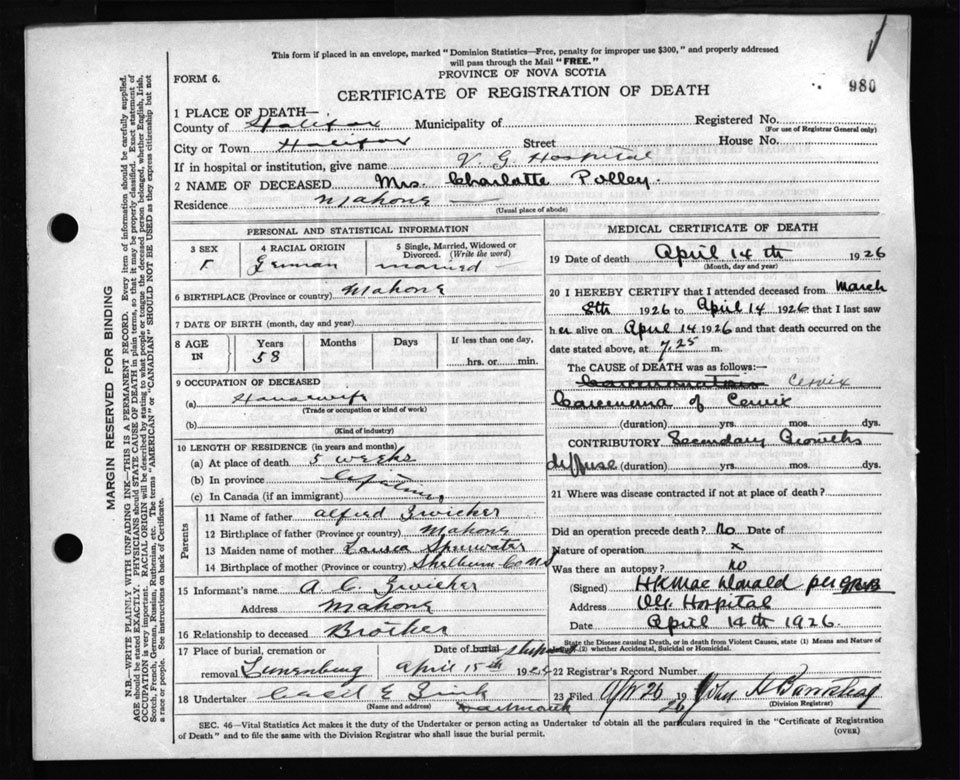 This form if placed in an envelope, marked "Dominion Statistics—Free, penalty for improper use $300," and properly addressed
will pass through the Mail "FREE."
PROVINCE OF NOVA SCOTIA
FORM 6.
CERTIFICATE OF REGISTRATION OF DEATH
980
1 PLACE OF DEATH—
County of Halifax Municipality of Registered No.
(For use of Registrar General only)
City or Town Halifax Street House No.
If in hospital or institution, give name V. G. Hospital
2 NAME OF DECEASED Mrs. Charlotte Polley.
Residence Mahone
(Usual place of abode)
PERSONAL AND STATISTICAL INFORMATION
3 SEX 4 RACIAL ORIGIN 5 Single, Married, Widowed or
Divorced. (Write the word)
F German married
6 BIRTHPLACE (Province or country) Mahone
7 DATE OF BIRTH (month, day and year)
8 AGE IN Years Months Days If less than one day,
58 hrs. or min.
9 OCCUPATION OF DECEASED
(a) Housewife
(Trade or occupation or kind of work)
(b)
(Kind of industry)
10 LENGTH OF RESIDENCE (in years and months)
(a) At place of death 5 weeks
(b) In province Lifetime
(c) In Canada (if an immigrant)
Parents
11 Name of father Alfred Zwicker
12 Birthplace of father (Province or country) Mahone
13 Maiden name of mother Laura
14 Birthplace of mother (Province or country) Shelburn Co NS
15 Informant's name A. C. Zwicker
Address Mahone
16 Relationship to deceased Brother
17 Place of burial, cremation or Date of burial
removal Lunenburg April 15th 192
18 Undertaker E Zink
(Name and address) Dartmouth
MEDICAL CERTIFICATE OF DEATH
19 Date of death April 14th 1926
(Month, day and year)
20 I HEREBY CERTIFY that I attended deceased from March
8th 1926 to April 14 1926 that I last saw
her alive on April 14 1926 and that death occurred on
date stated above, at 7.25 m.
The CAUSE of DEATH was as follows:—
Cervix
Carcinoma of Cervix
(duration) yrs. mos. dys.
CONTRIBUTORY Secondary Growths
diffuse (duration) yrs. mos. dys.
21 Where was disease contracted if not at place of death?
Did an operation precede death? No Date of
Nature of operation x
Was there an autopsy? No
(Signed) H K MacDonald per
Address V.G. Hospital
Date April 14th 1926.
State the Disease causing Death, or in death from Violent Causes, state (1) Means and Nature of
(2) whether Accidental, Suicidal or Homicidal.
22 Registrar's Record Number
23 Filed Apr 26 1926 John H Barnstead
(Division Registrar)
SEC. 46—Vital Statistics Act makes it the duty of the Undertaker or person acting as Undertaker to obtain all the particulars required in the "Certificate of Registration
of Death" and to file the same with the Division Registrar who shall issue the burial permit.
(OVER)
MARGIN RESERVED FOR BINDING
N.B.—WRITE PLAINLY WITH UNFADING INK—THIS IS A PERMANENT RECORD. Every item of information should be carefully supplied.
AGE should be stated EXACTLY. PHYSICIANS should STATE CAUSE OF DEATH in plain terms, so that it may be properly classified. Exact statement of
OCCUPATION is very important. RACIAL ORIGIN will be described by stating to what people or tongue the deceased person belonged, whether English, Irish,
Scotch, French, German, Russian, Ruthenian, etc. The terms "AMERICAN" or "CANADIAN" SHOULD NOT BE USED as they express citizenship but not
a race or people. See instructions on back of Certificate.